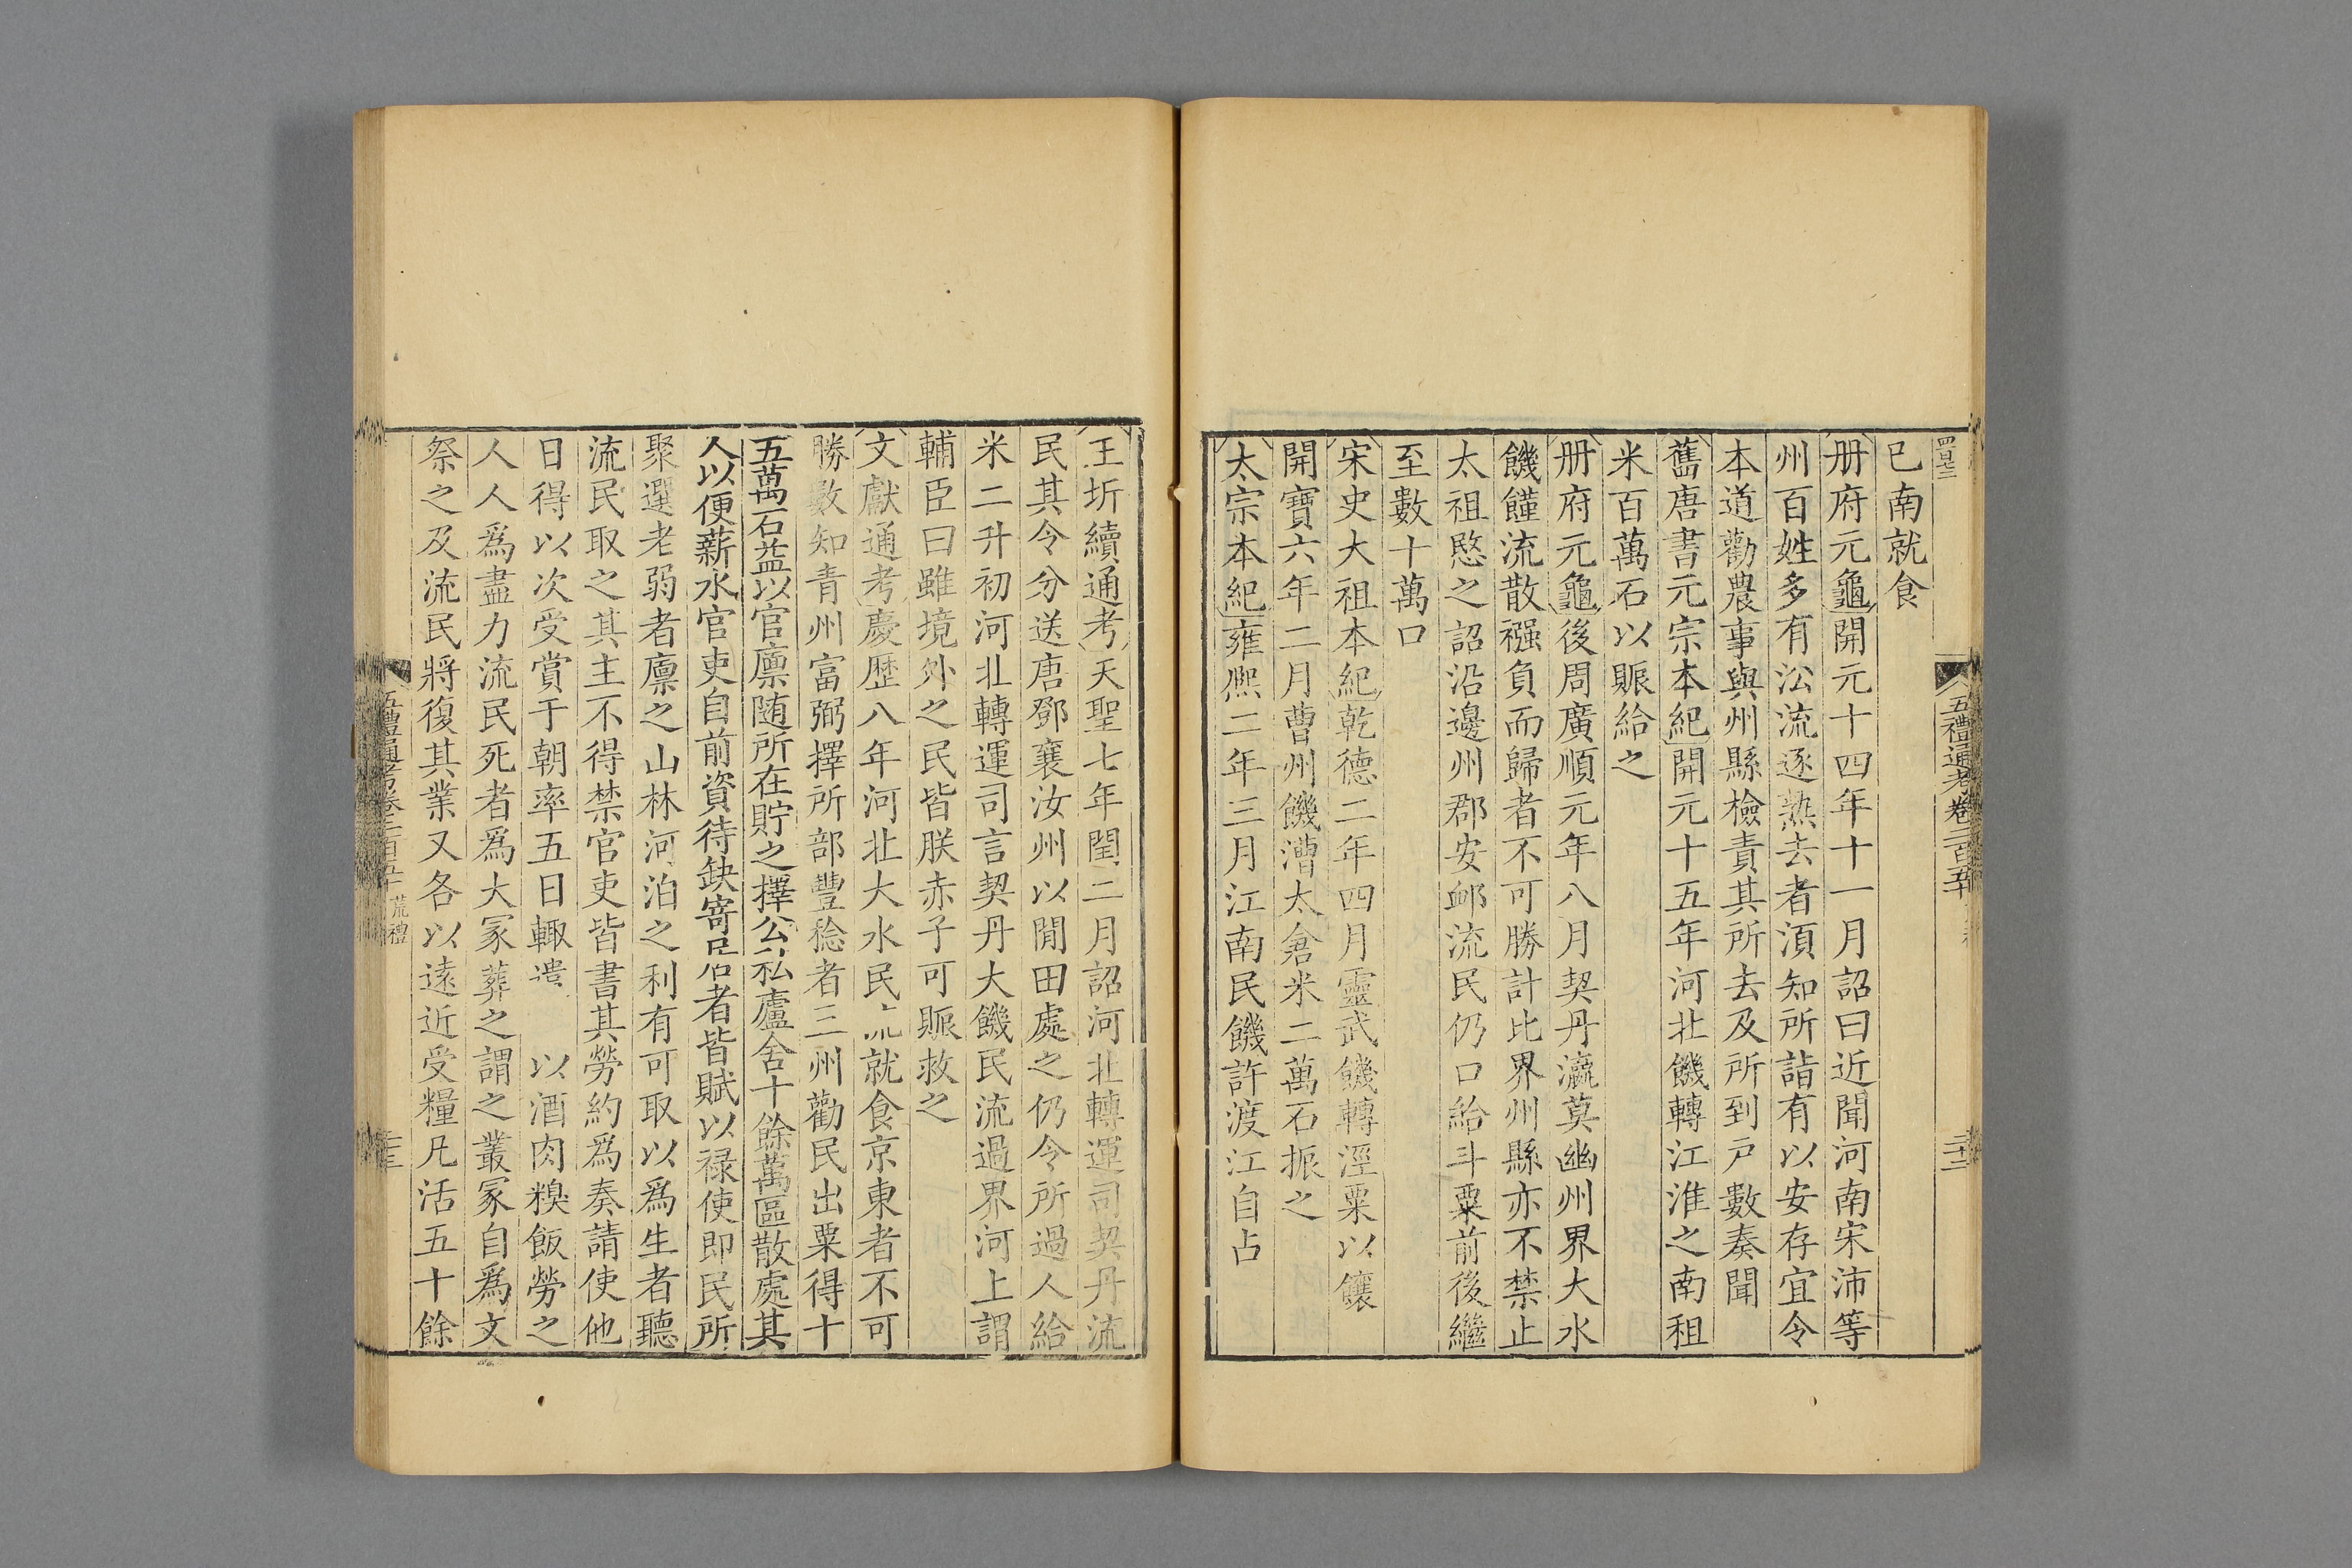 五禮通考卷二百五十
二十二
已南就食
册府元龜開元十四年十一月詔曰近聞河南宋沛等
州百姓多有㳂流逐熟去者湏知所詣有以安存宜令
本道勸農事與州縣檢責其所去及所到户數奏聞
舊唐書元宗本紀開元十五年河北饑轉江淮之南租
米百萬石以賑給之
册府元龜後周廣順元年八月契丹瀛莫幽州界大水
饑饉流散襁負而歸者不可勝計比界州縣亦不禁止
太祖愍之詔沿邊州郡安衈流民仍口給斗粟前後繼
至數十萬口
宋史大祖本紀乾德二年四月靈武饑轉涇粟以饟
開寶六年二月曹州饑漕太倉米二萬石振之
太宗本紀雍熈二年三月江南民饑許渡江自占
王圻續通考天聖七年閏二月詔河北轉運司契丹流
民其令分送唐鄧襄汝州以閒田處之仍令所過人給
米二升初河北轉運司言契丹大饑民流過界河上謂
輔臣曰雖境外之民皆朕赤子可賑救之
文獻通考慶歷八年河北大水民流就食京東者不可
勝數知青州富弼擇所部豐稔者三州勸民出粟得十
五萬石益以官廪随所在貯之擇公私廬舍十餘萬區散處其
人以便薪水官吏自前資待缺寄居者皆賦以禄使即民所
聚選老弱者廪之山林河泊之利有可取以爲生者聽
流民取之其主不得禁官吏皆書其勞約爲奏請使他
日得以次受賞于朝率五日輙遣 以酒肉糗飯勞之
人人爲盡力流民死者爲大冢葬之謂之叢冢自爲文
祭之及流民將復其業又各以逺近受糧凡活五十餘
五禮通考卷二百五十 荒禮
二十三